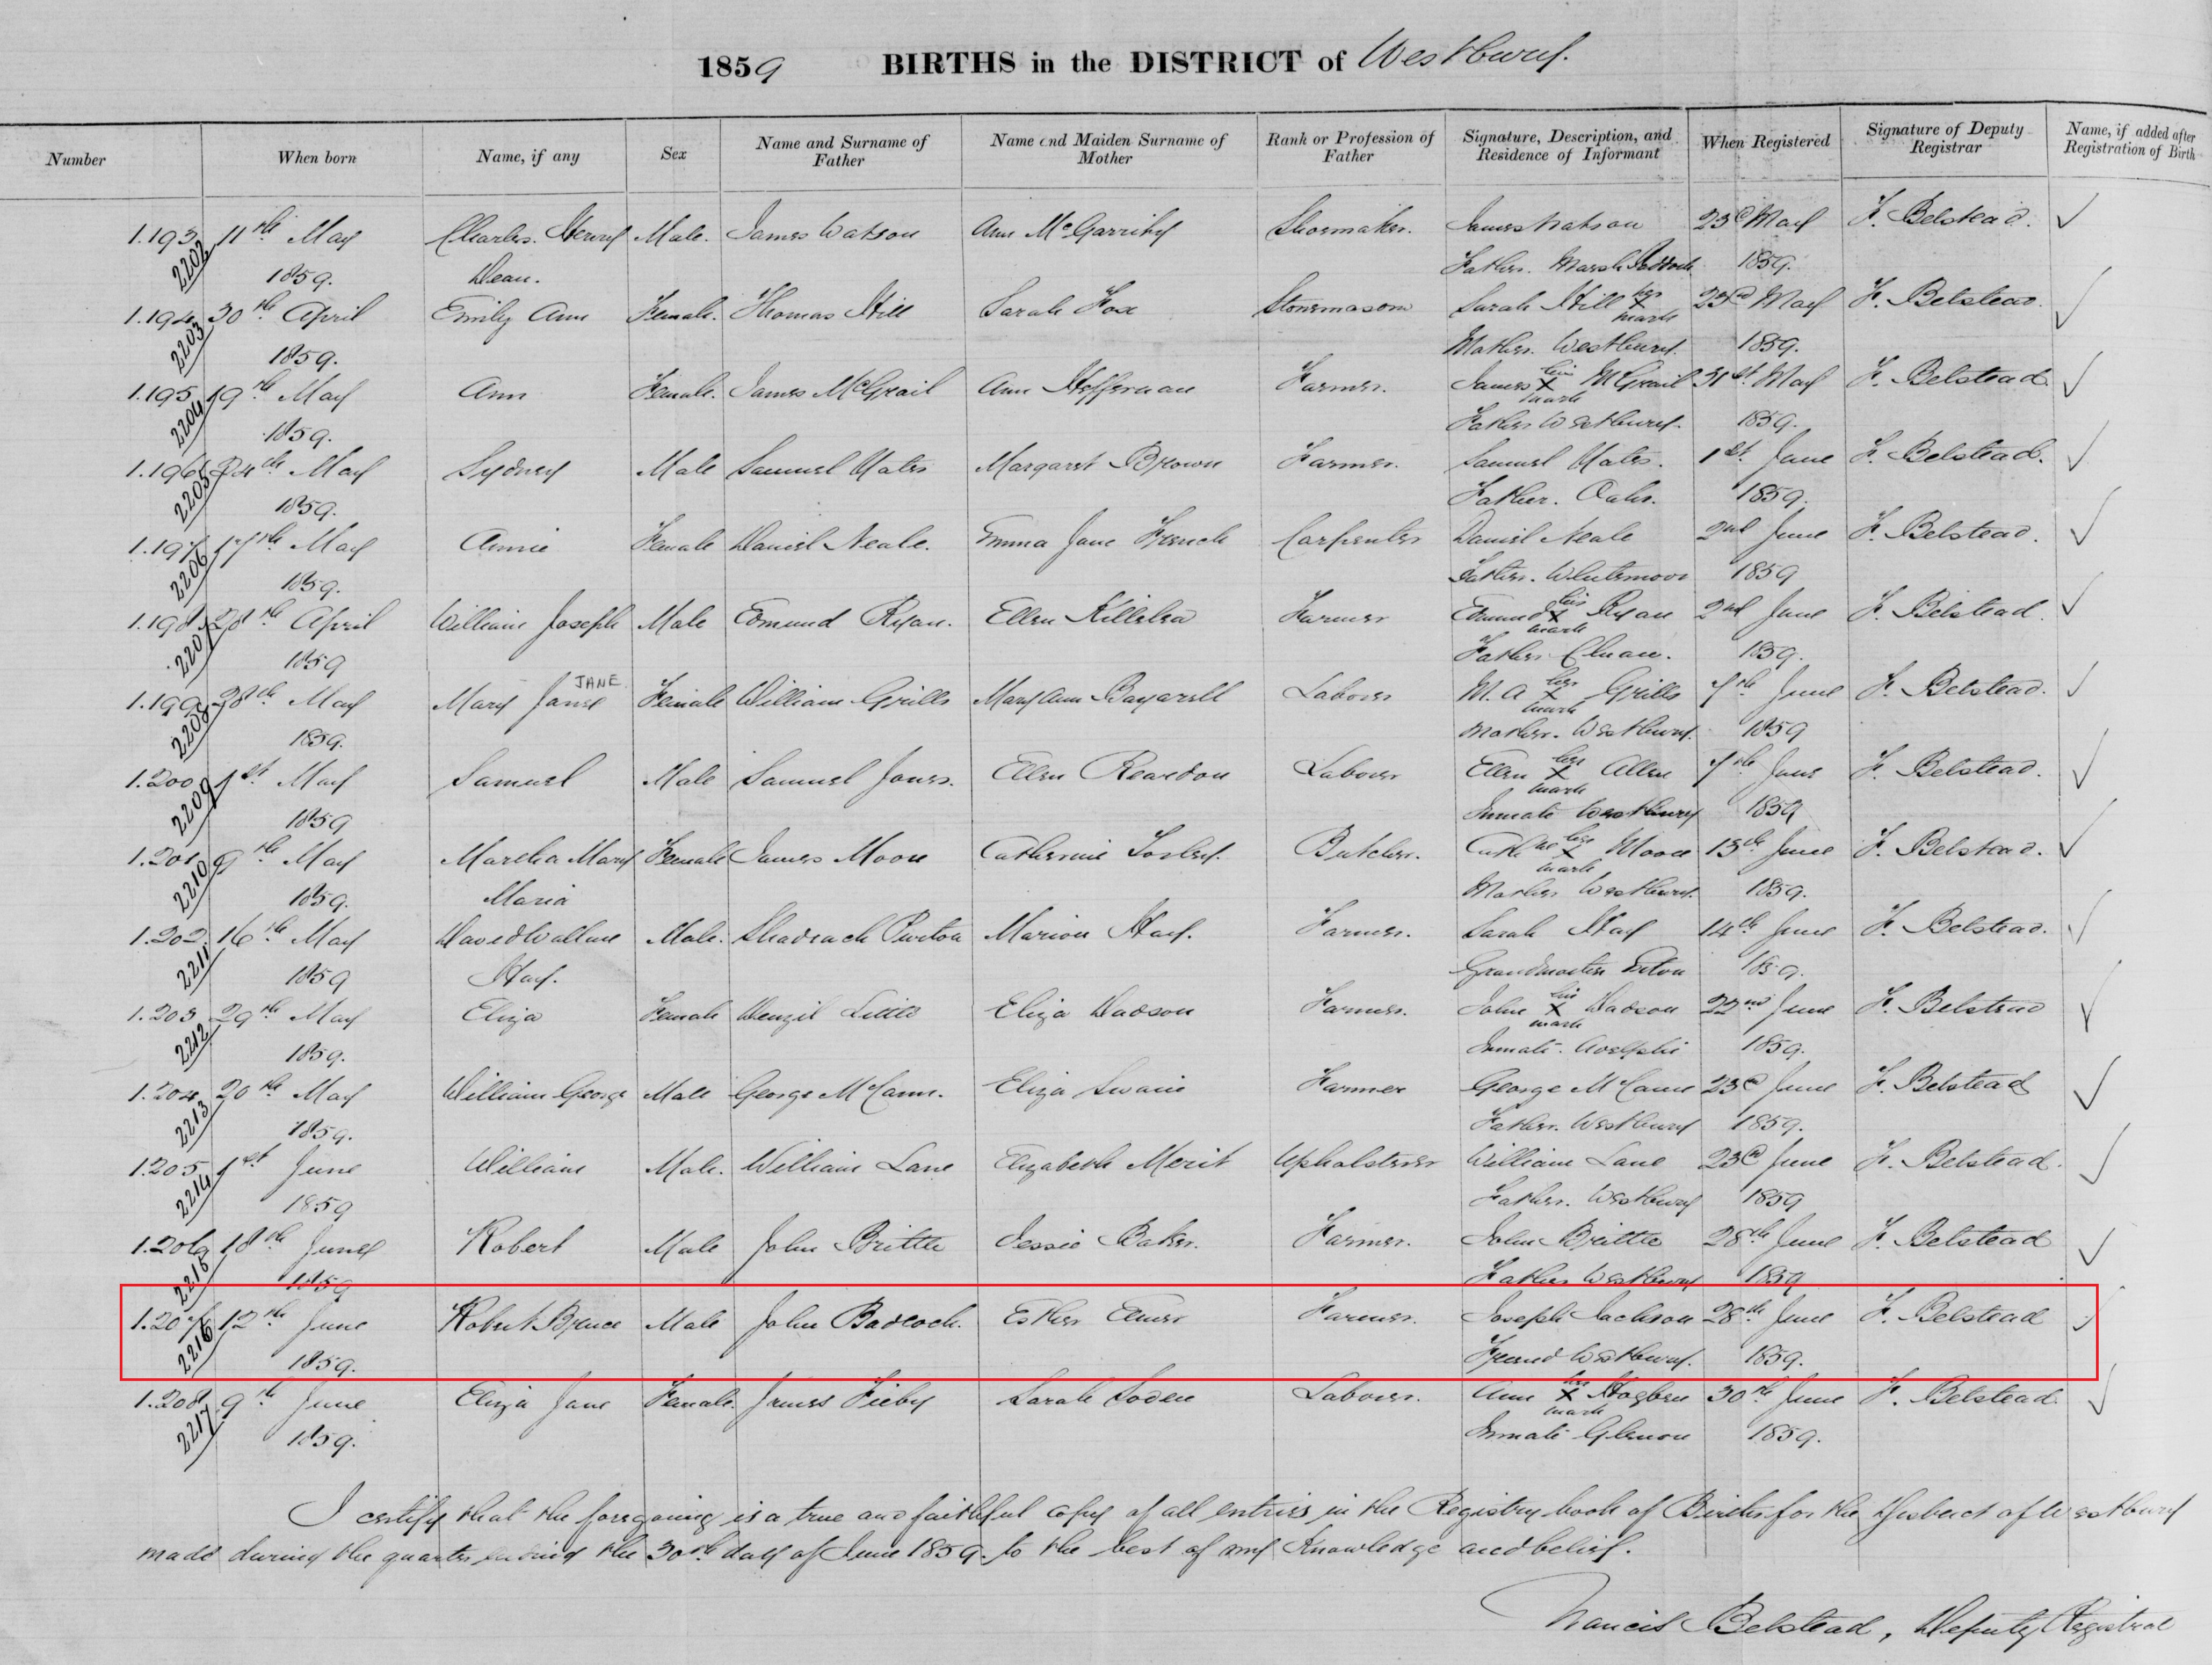 1859 BIRTHS in the DISTRICT of Westbury.
Number When born Name, if any Sex Name and Surname of Father Name and Maiden Surname of Mother Rank or Profession of Father Signature, Description, and Residence of Informant When Registered Signature of Deputy Registrar Name, if added after Registration of Birth
1.193 11th May Charles Henry Male. James Watson Ann McGarrihy Shoemaker. James Watson 23d May F. Belstead. ✓
2202 1859. Dean. Father. Marsh Paddock 1859.
1.194 30th April Emily Ann Female. Thomas Hill Sarah Fox Stonemason Sarah Hill her X mark 23rd May F. Belstead. ✓
2203 1859. Mother. Westbury. 1859.
1.195 19th May Ann Female. James McGrail Ann Heffernan Farmer. James his X mark McGrail 31st May F. Belstead ✓
2204 1859. Father Westbury. 1859.
1.196 24th May Sydney Male Samuel Margaret Brown Farmer. Samuel 1st June F. Belstead. ✓
2205 1859. Father. Oaks. 1859.
1.197 17th May Annie Female Daniel Neale. Emma Jane French Carpenter Daniel Neale 2nd June F. Belstead. ✓
2206 1859. Father. Whitemoor 1859
1.198 28th April William Joseph Male Edmund Ryan. Ellen Killelea Farmer Edmund his X mark Ryan 2nd June F. Belstead. ✓
2207 1859 Father Cluan. 1859.
1.199 28th May Mary Jane JANE Female William Grills Mary Ann Labourer M. A her X mark Grills 7th June F. Belstead. ✓
2208 1859. Mother. Westbury. 1859
1.200 1st May Samuel Male Samuel Jones. Ellen Reardon Labourer Ellen her X mark Allen 7th June F. Belstead. ✓
2209 1859 Inmate Westbury 1859
1.201 9th May Martha Mary Female James Moore Catherine Butcher. Cathne her X mark Moore 13th June F. Belstead. ✓
2210 1859. Maria Mother Westbury. 1859.
1.202. 16th May David Wallace Male. Shadrach Purton Marion Hay. Farmer. Sarah Hay 14th June F. Belstead. ✓
2211 1859 Hay. Grandmother Exton 1859.
1.203 29th May Eliza Female Denzil Eliza Dadson Farmer. John his X mark Dadson 22nd June F. Belstead ✓
2212 1859. Inmate. Adelphi 1859.
1.204 20th May William George Male George McCann. Eliza Swain Farmer George McCann 23d June F. Belstead ✓
2213 1859. Father. Westbury 1859.
1.205 1st June William Male. William Lane Elizabeth Merit Upholsterer William Lane 23d June F. Belstead. ✓
2214 1859 Father. Westbury 1859
1.206 18th June Robert Male John Brittle Jessie Baker. Farmer. John Brittle 28th June F. Belstead ✓
2215 1859 Father Westbury 1859
1.207 12th June Robert Bruce Male John Badcock. Esther Farmer. Joseph Jackson 28th June F. Belstead ✓
2216 1859. Friend Westbury. 1859.
1.208 9th June Eliza Jane Female. James Sarah Soden Labourer. Ann her X mark Hogben 30th June F. Belstead. ✓
2217 1859. Inmate Glenore 1859.
I certify that the foregoing is a true and faithful copy of all entries in the Registry book of Births for the District of Westbury
made during the quarter ending the 30th day of June 1859. to the best of my Knowledge and belief.
Francis Belstead, Deputy Registrar